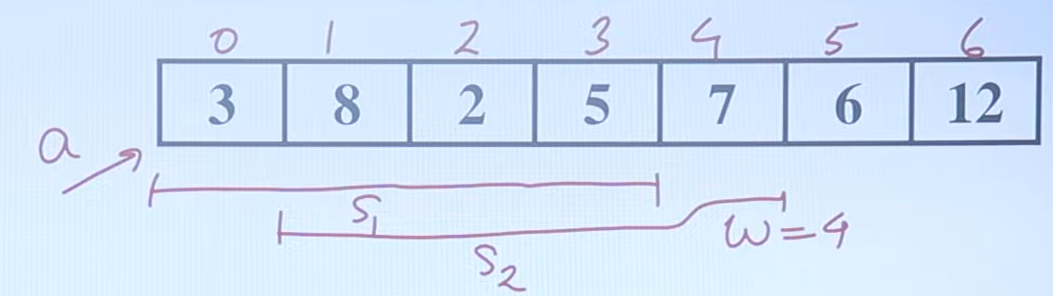 0 1 2 3 4 5 6
3 8 2 5 7 6 12
a
S1
S2
W=4